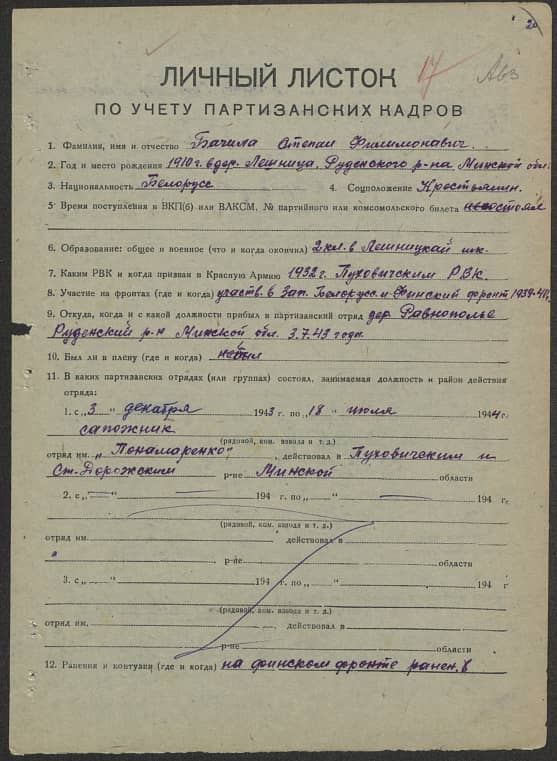 20
17
ЛИЧНЫЙ ЛИСТОК
ПО УЧЕТУ ПАРТИЗАНСКИХ КАДРОВ
1. Фамилия, имя и отчество Бачила Степан Филимонович.
2. Год и место рождения 1910 г. в дер. Лешница, Руденского р-на Минской обл.
3. Национальность Белорусс 4. Соцположение Крестьянин.
5. Время поступления в ВКП(б) или ВЛКСМ, № партийного или комсомольского билета
6. Образование: общее и военное (что и когда окончил) 2 кл. в Лешницкой шк.
7. Каким РВК и когда призван в Красную Армию 1932 г. Пуховичским РВК
8. Участие на фронтах (где и когда) участв. в Зап. Белорусс. и Финский фронт 1939-
9. Откуда, когда и с какой должности прибыл в партизанский отряд дер. Равнополье
Руденский р-н Минской обл. 3.7.43 года
10. Был ли в плену (где и когда) не был
11. В каких партизанских отрядах (или группах) состоял, занимаемая должность и район действия
отряда:
1. с „3“ декабря 1943 г. по „18“ июля 1944 г.
сапожник
(рядовой, ком. взвода и т. д.)
отряд им. „Понамаренко“, действовал в Пуховичским и
Ст. Дорожским р-не Минской области
2. с „—“ — 194 г. по „—“ — 194 г.
(рядовой, ком. взвода и т. д.)
отряд им. , действовал в
р-не области
3. с „ “ 194 г. по „ “ 194 г
(рядовой, ком. взвода и т. д.)
отряд им. , действовал в
р-не области
12. Ранения и контузии (где и когда) на финском фронте ранен. в